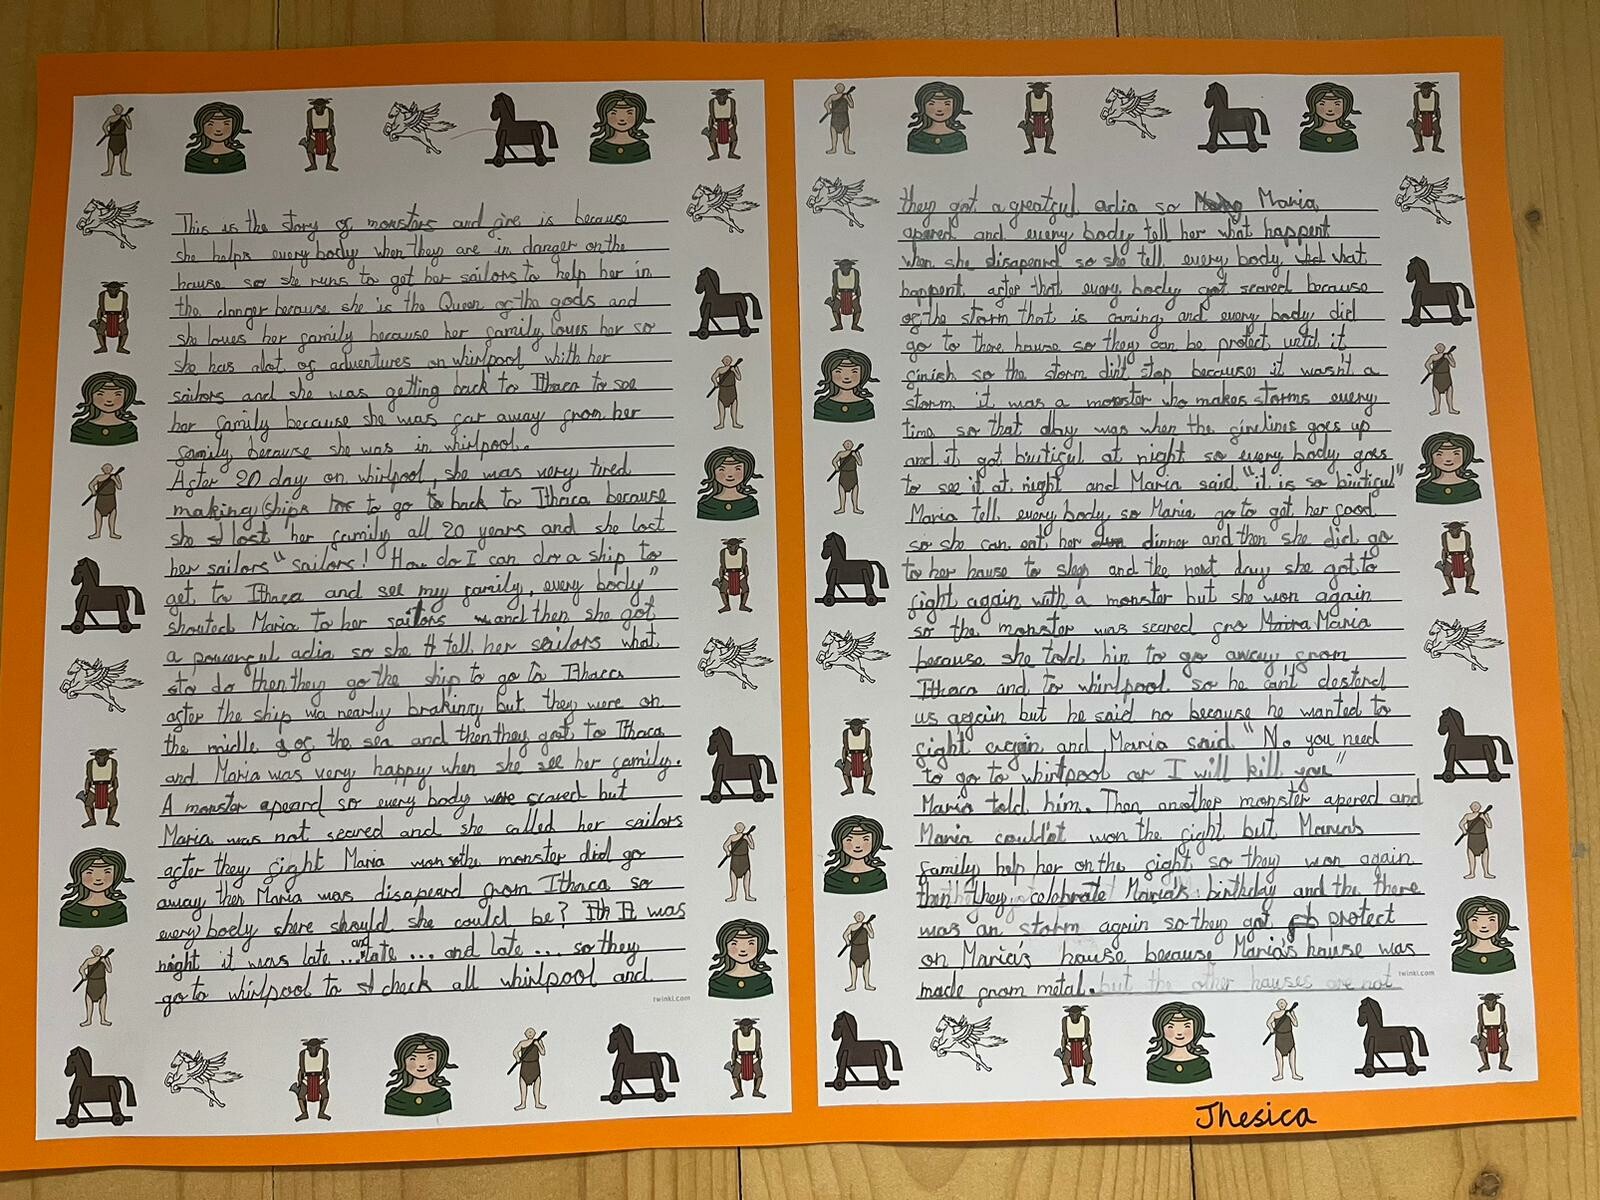 This is the story of monsters and fire is because
she helps every body when they are in danger on the
hause so she runs to get her sailors to help her in
the danger because she is the Queen of the gods and
she loves her family because her family loves her so
she has alot of adventures on whirlpool with her
sailors and she was getting back to Ithaca to see
her family because she was far away from her
family because she was in whirlpool.
After 20 day on whirlpool, she was very tired
making ships to go to back to Ithaca because
she lost her family all 20 years and she lost
her sailors "sailors! How do I can do a ship to
get to Ithaca and see my family, every body"
shouted Maria to her sailors and then she got
a powerful adia so she tell her sailors what
to do then they go the ship to go to Ithaca
after the ship wa nearly braking but they were on
the midle of the sea and then they got to Ithaca
and Maria was very happy when she see her family.
A monster apeard so every body were scared but
Maria was not scared and she called her sailors
after they fight Maria won so the monster did go
away then Maria was disapeard from Ithaca so
every body where should she could be? It was
night it was late... and late ... and late ... so they
go to whirlpool to check all whirlpool and
they got a greatful adia so Maria
apered and every body tell her what happent
when she disapeard so she tell every body what
happent after that every body got scared because
of the storm that is coming and every body did
go to there hause so they can be protect until it
finish so the storm did't stop because it wasn't a
storm it was a monster who makes storms every
time so that day was when the firelines goes up
and it got buitiful at night so every body goes
to see it at night and Maria said "it is so buitiful"
Maria tell every body so Maria go to get her food
so she can eat her dinner and then she did go
to her hause to sleep and the next day she got to
fight again with a monster but she won again
so the monster was scared fro Maria
because she told him to go away from
Ithaca and to whirlpool so he can't destend
us again but he said no because he wanted to
fight again and Maria said "No you need
to go to whirlpool or I will kill you"
Maria told him. Then another monster apered and
Maria could'not won the fight but Marias
family help her on the fight so they won again
then they celebrate Maria's birthday and the there
was an storm again so they got protect
on Maria's hause because Maria's hause was
made from metal. but the other hauses are not
twinkl.com
twinkl.com
Jhesica